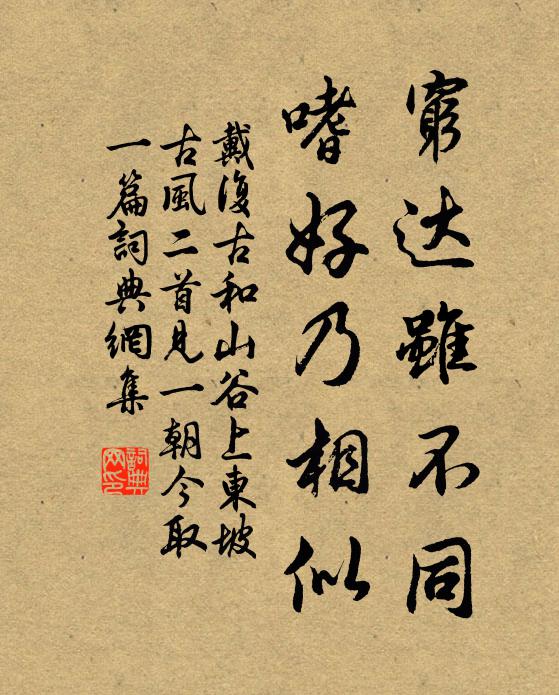 窮达雖不同
嗜好乃相似
戴復古和山谷上東坡
古風二首見一朝今取
一篇詞典網集
詞典網印